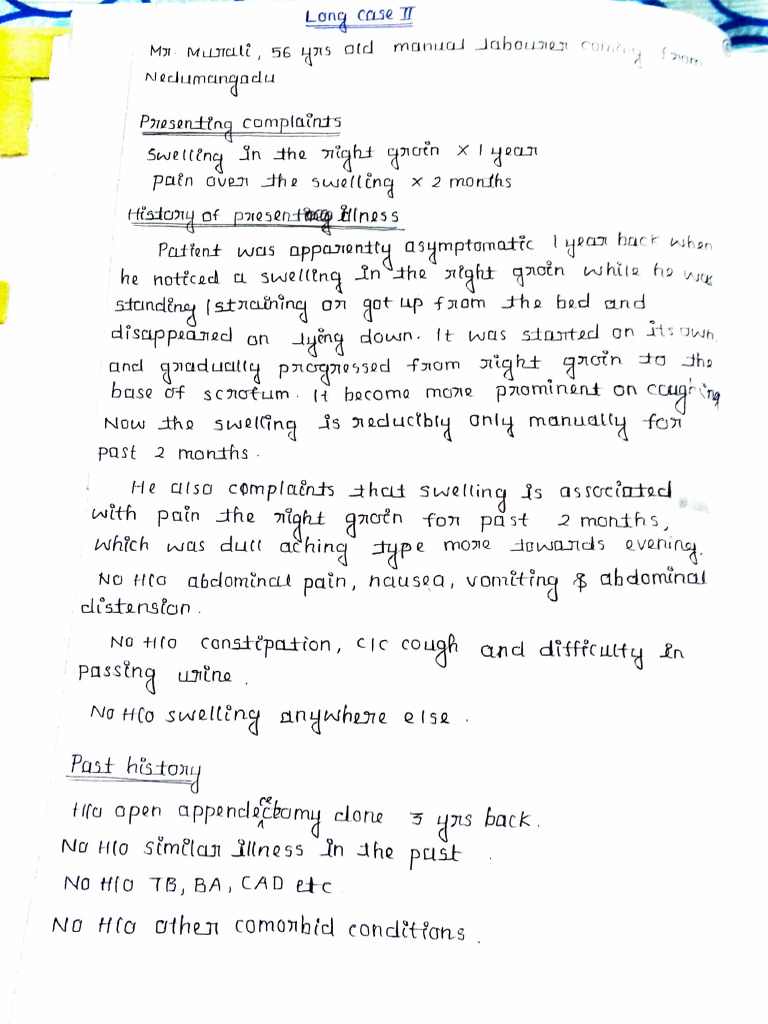 Long case II
Mr. Murali, 56 yrs old manual labourer coming from
Nedumangadu
Presenting complaints
swelling in the right groin × 1 year
pain over the swelling × 2 months
History of presenting illness
Patient was apparently asymptomatic 1 year back when
he noticed a swelling in the right groin while he was
standing / straining or got up from the bed and
disappeared on lying down. It was started on its own
and gradually progressed from right groin to the
base of scrotum. It become more prominent on coughing
Now the swelling is reducibly only manually for
past 2 months.
He also complaints that swelling is associated
with pain the right groin for past 2 months,
which was dull aching type more towards evening.
No H/o abdominal pain, nausea, vomiting & abdominal
distension.
No H/o constipation, c/c cough and difficulty in
passing urine.
No H/o swelling anywhere else.
Past history
H/o open appendicectomy done 3 yrs back.
No H/o similar illness in the past.
No H/o TB, BA, CAD etc
No H/o other comorbid conditions.